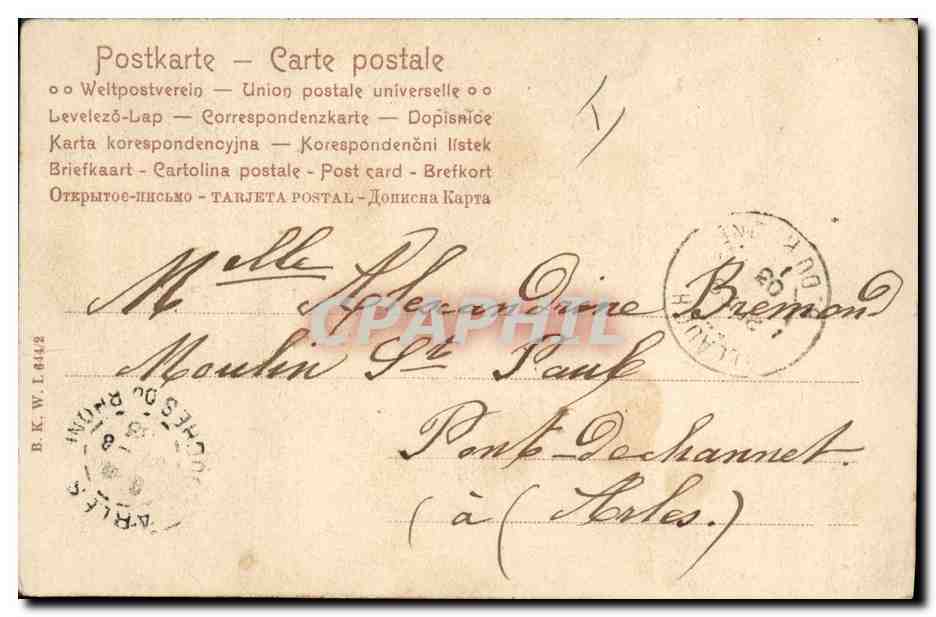 Postkarte — Carte postale
Weltpostverein — Union postale universelle
Levelező-Lap — Correspondenzkarte — Dopisnice
Karta korespondencyjna — Korespondenčni lístek
Briefkaart - Cartolina postale - Post card - Brefkort
Открытое-письмо - TARJETA POSTAL - Дописна Карта
Mlle Alexandrine Bremond
Moulin St Paul
Pont-de channet.
(à (Arles.)
B. K. W. I. 644/2
ARLES
BOUCHES DU RHONE
CPAPHIL